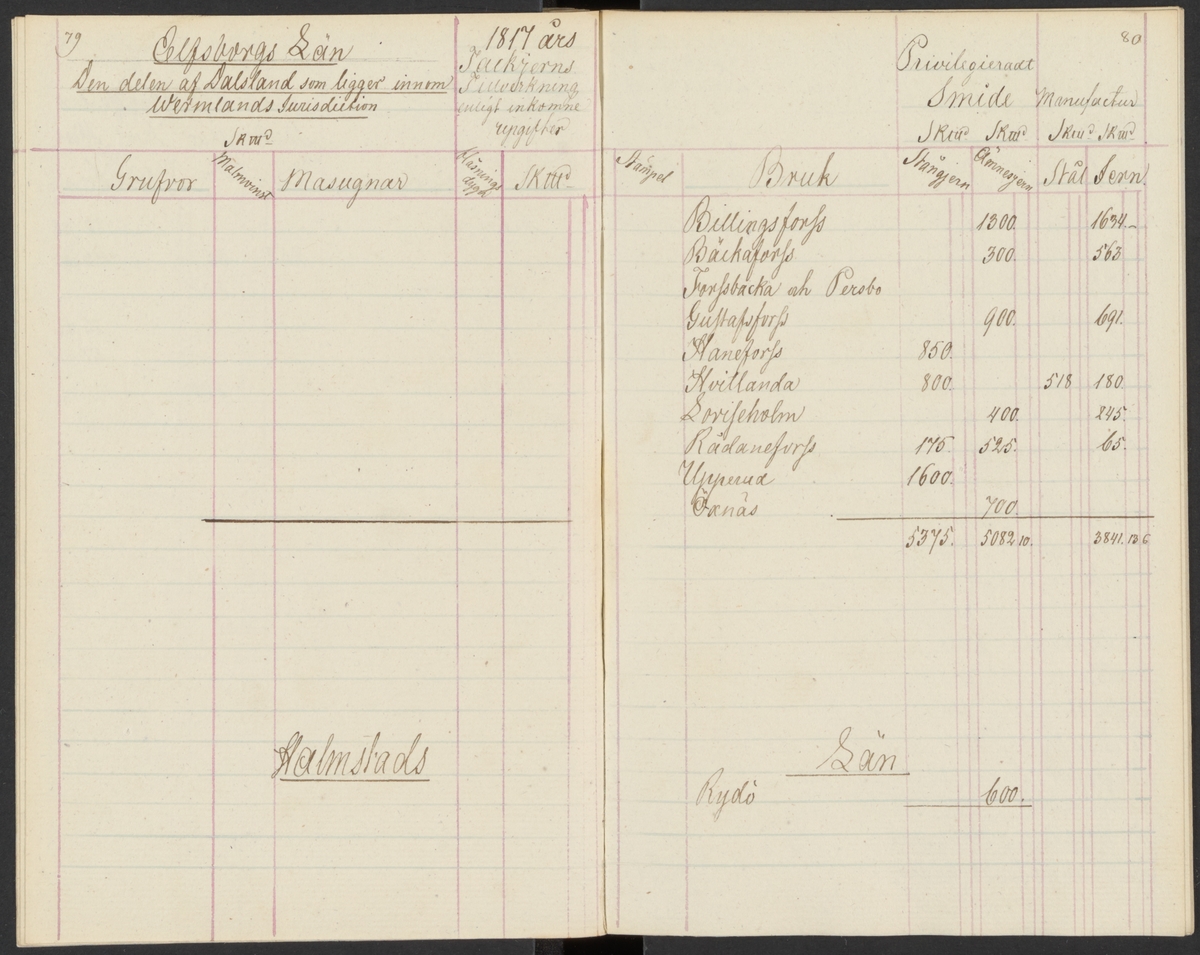 79
Elfsborgs Län
Den delen af Dalsland som ligger innom
Wermlands Jurisdiction
Sk℔d
1817 års
Tackjerns
Tillverkning
enligt inkomne
upgifter
Grufvor Malmvinst Masugnar Blåsnings dygn Sk℔d
80
Privilegieradt
Smide Manufactur
Sk℔d Sk℔d Sk℔d Sk℔d
Stämpel Bruk Stångjern Ämnesjern Stål Jern
Billingsforss 1300. 1634.-
Bäckaforss 300. 563
Forssbacka och Persbo
Gustafsforss 900. 691.
Haneforss 850.
Hvitlanda 800. 518 180
Loviseholm 400. 245.
Rådaneforss 175. 525. 65.
Upperud 1600.
Öxnäs 700.
5375. 5082 10. 3841. 13 6
Halmstads Län
Rydö 600.